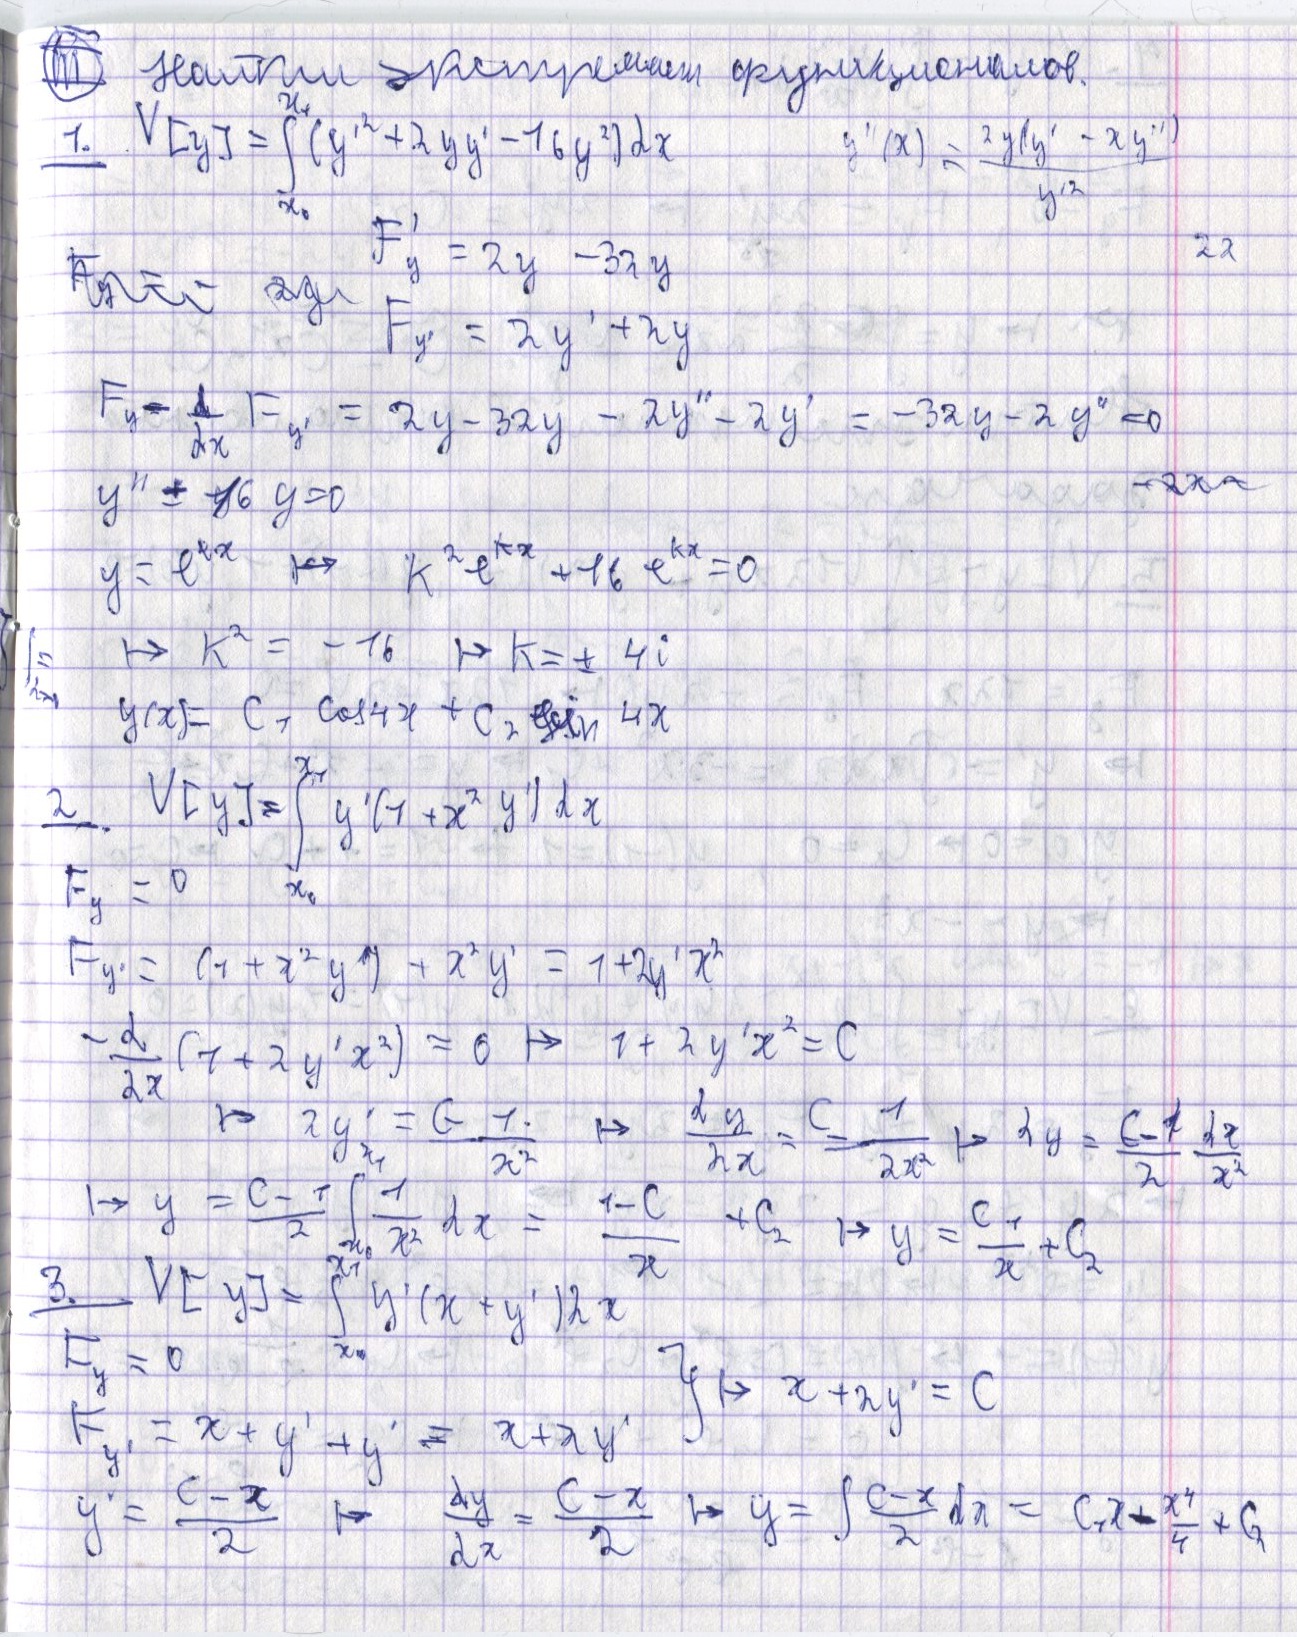 III Найти экстремали функционалов.
1. V[y] = ∫_{x₀}^{x₁} (y'² + 2yy' - 16y²) dx
y'(x) = 2y(y' - xy'') / y'²
F'_y = 2y - 32y
22
F_{y'} = 2y' + 2y
F_y - d/dx F_{y'} = 2y - 32y - 2y'' - 2y' = -32y - 2y'' = 0
y'' + 16 y = 0
y = e^{kx} ↦ k² e^{kx} + 16 e^{kx} = 0
↦ k² = -16 ↦ k = ± 4i
y(x) = C₁ cos 4x + C₂ sin 4x
2. V[y] = ∫_{x₀}^{x₁} y'(1 + x² y') dx
F_y = 0
F_{y'} = (1 + x² y') + x² y' = 1 + 2y'x²
- d/dx (1 + 2y'x²) = 0 ↦ 1 + 2y'x² = C
↦ 2y' = C-1/x² ↦ dy/dx = C-1/2x² ↦ dy = C-1/2 dx/x²
↦ y = C-1/2 ∫_{x₀}^{x₁} 1/x² dx = 1-C/x + C₂ ↦ y = C₁/x + C₂
3. V[y] = ∫_{x₀}^{x₁} y'(x + y') dx
F_y = 0
F_{y'} = x + y' + y' = x + 2y' } ↦ x + 2y' = C
y' = C-x/2 ↦ dy/dx = C-x/2 ↦ y = ∫ C-x/2 dx = C₁x - x⁴/4 + C₂